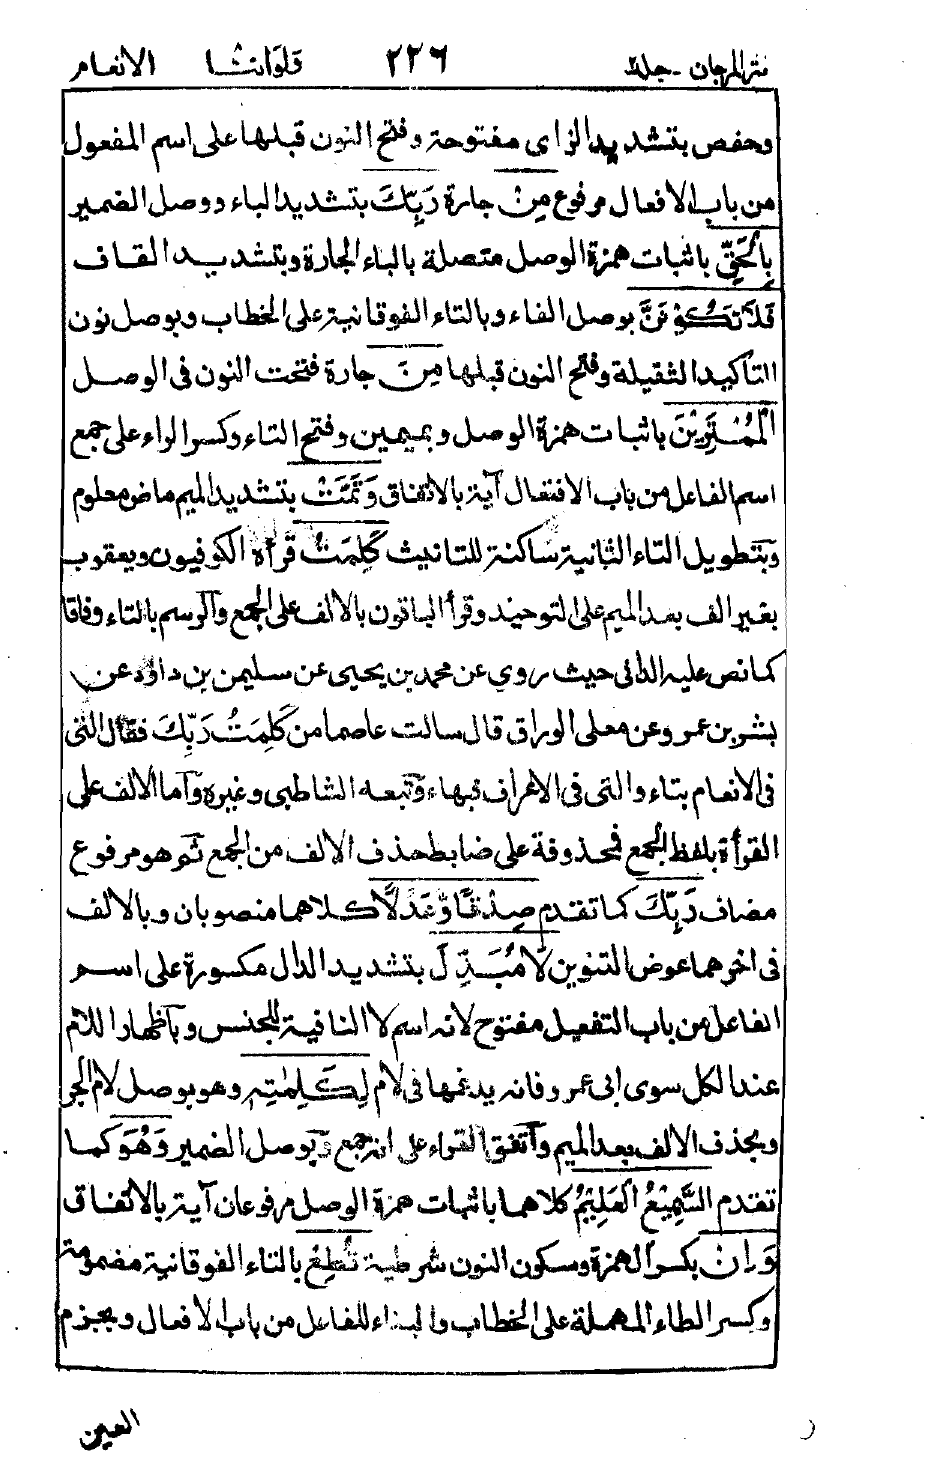 نثر المرجان - جلد ٢٢٦ ولواننا الانعام
وحفص بتشديد الزاى مفتوحة وفتح النون قبلها على اسم المفعول
من باب الافعال مرفوع مِنْ جارة رَبِّكَ بتشديد الباء ووصل الضمير
بِالْحَقِّ باثبات همزة الوصل متصلة بالباء الجارة وبتشديد القاف
فَلَا تَكُوْنَنَّ بوصل الفاء وبالتاء الفوقانية على الخطاب وبوصل نون
التأكيد الثقيلة وفتح النون قبلها مِنَ جارة فتحت النون فى الوصل
الْمُمْتَرِيْنَ باثبات همزة الوصل وبميمين وفتح التاء وكسر الراء على جمع
اسم الفاعل من باب الافتعال آية بالاتفاق وَتَمَّتْ بتشديد الميم ماض معلوم
وبتطويل التاء الثانية ساكنة للتانيث كَلِمَتُ قرأه الكوفيون ويعقوب
بغير الف بعد الميم على التوحيد وقرأ الباقون بالالف على الجمع والرسم بالتاء وفاقا
كما نص عليه الدانى حيث روي عن محمد بن يحيى عن سليمن بن داؤد عن
بشر بن عمر وعن معلى الوراق قال سالت عاصما من كَلِمَتُ رَبِّكَ فقال التى
فى الانعام بتاء والتى فى الاعراف فبهاء وتبعه الشاطبى وغيره واما الالف على
القرأة بلفظ الجمع فمحذوفة على ضابط حذف الالف من الجمع ثم هو مرفوع
مضاف رَبِّكَ كما تقدم صِدْقًا وَّعَدْلًا كلاهما منصوبان وبالالف
فى اخرهما عوض التنوين لَا مُبَدِّلَ بتشديد الدال مكسورة على اسم
الفاعل من باب التفعيل مفتوح لانه اسم لا النافية للجنس وباظهار اللام
عند الكل سوى ابى عمرو فانه يدغمها فى لام لِكَلِمٰتِهٖ وهو بوصل لام الجر
وبحذف الالف بعد الميم واتفق القراء على انه جمع وبوصل الضمير وَهُوَ كما
تقدم السَّمِيْعُ الْعَلِيْمُ كلاهما باثبات همزة الوصل مرفوعان آية بالاتفاق
وَاِنْ بكسر الهمزة وسكون النون شرطية تُطِعْ بالتاء الفوقانية مضمومة
وكسر الطاء المهملة على الخطاب والبناء للفاعل من باب الافعال وبجزم
العين